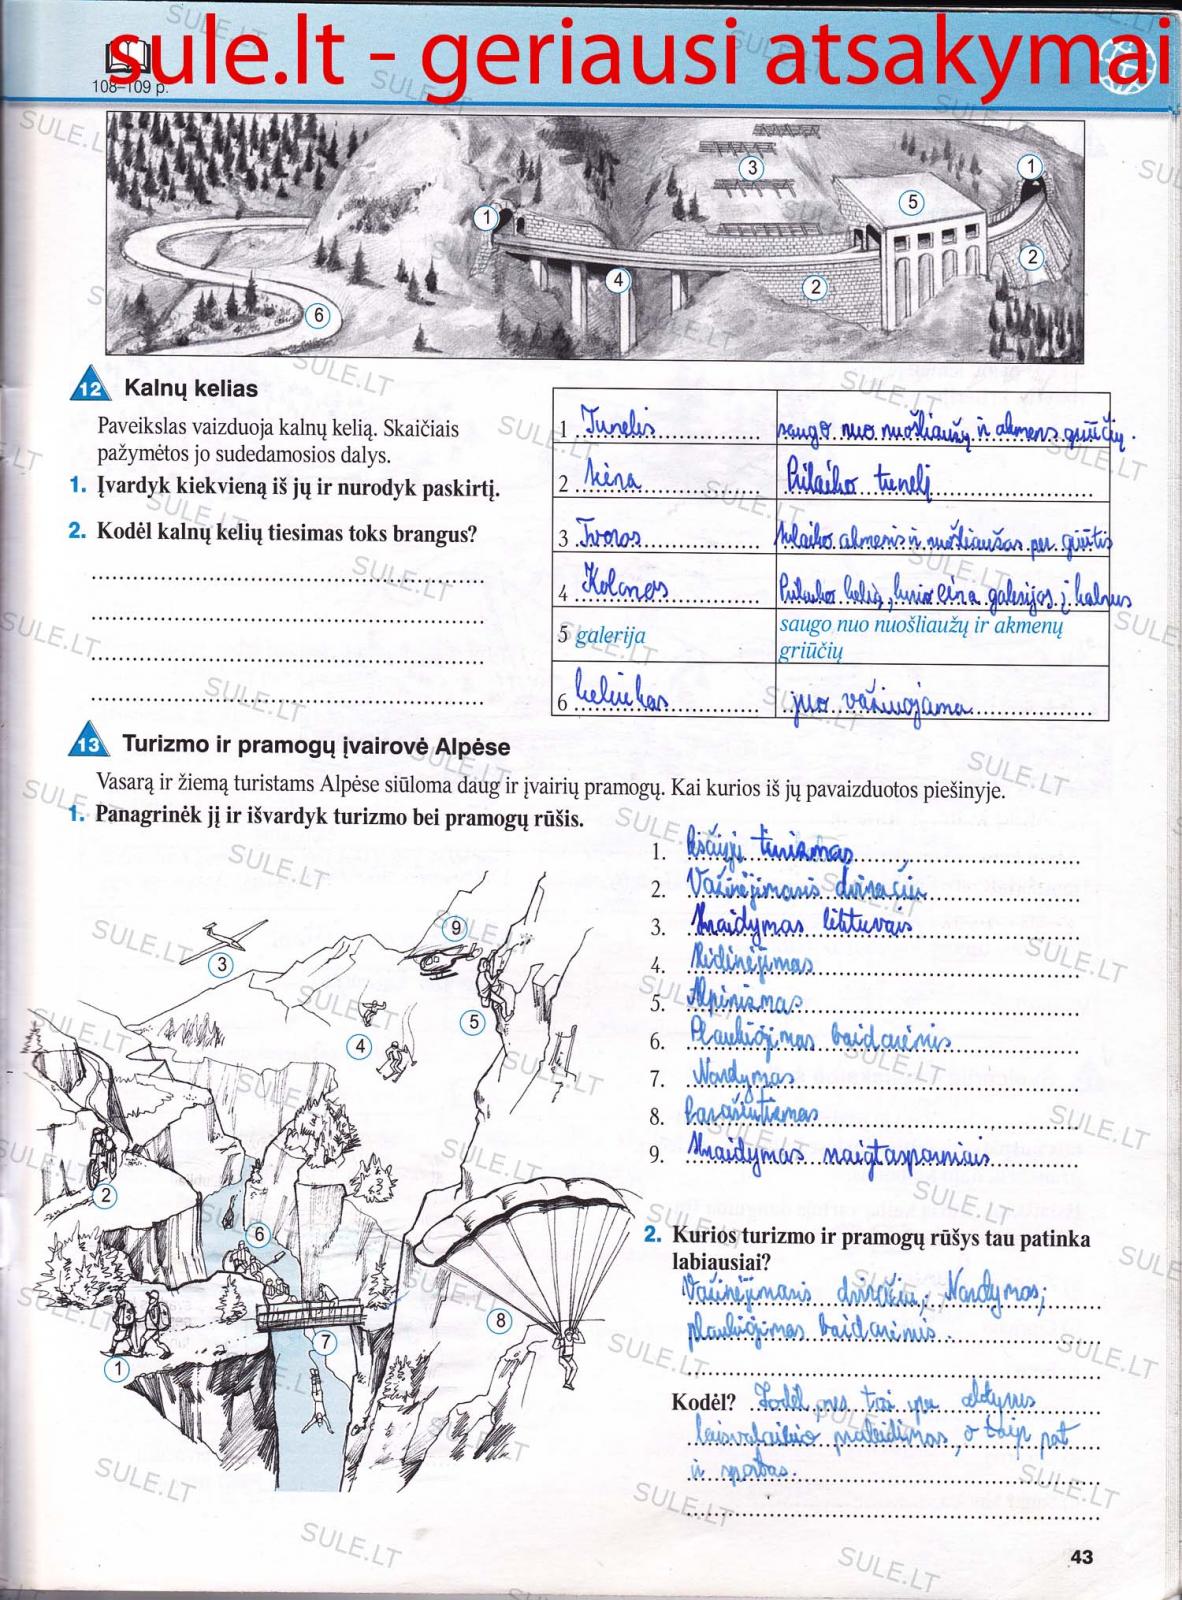 sule.lt - geriausi atsakymai
108–109 p.
1
3
5
1
2
4
2
6
12 Kalnų kelias
Paveikslas vaizduoja kalnų kelią. Skaičiais
pažymėtos jo sudedamosios dalys.
1. Įvardyk kiekvieną iš jų ir nurodyk paskirtį.
2. Kodėl kalnų kelių tiesimas toks brangus?
1 Tunelis saugo nuo nuošliaužų ir akmens griūčių.
2 siena Prilaiko tunelį
3 Tvoros sulaiko akmenis ir nuošliaužas per griūtis
4 Kolonos Prilaiko kelią, kurio eina galerijos į kalnus
5 galerija saugo nuo nuošliaužų ir akmenų
griūčių
6 keliukas juo važiuojama
13 Turizmo ir pramogų įvairovė Alpėse
Vasarą ir žiemą turistams Alpėse siūloma daug ir įvairių pramogų. Kai kurios iš jų pavaizduotos piešinyje.
1. Panagrinėk jį ir išvardyk turizmo bei pramogų rūšis.
1. Pėsčiųjų turizmas
2. Važinėjimasis dviračiu
3. Skraidymas lėktuvais
4. Slidinėjimas
5. Alpinizmas
6. Plaukiojimas baidarėmis
7. Nardymas
8. Parašiutizmas
9. Skraidymas sraigtasparniais
9
3
5
4
2
6
8
7
1
2. Kurios turizmo ir pramogų rūšys tau patinka
labiausiai?
Važinėjimasis dviračiu; Nardymas;
plaukiojimas baidarėmis.
Kodėl? Todėl, nes tai yra aktyvus
laisvalaikio praleidimas, o taip pat
ir sportas.
43